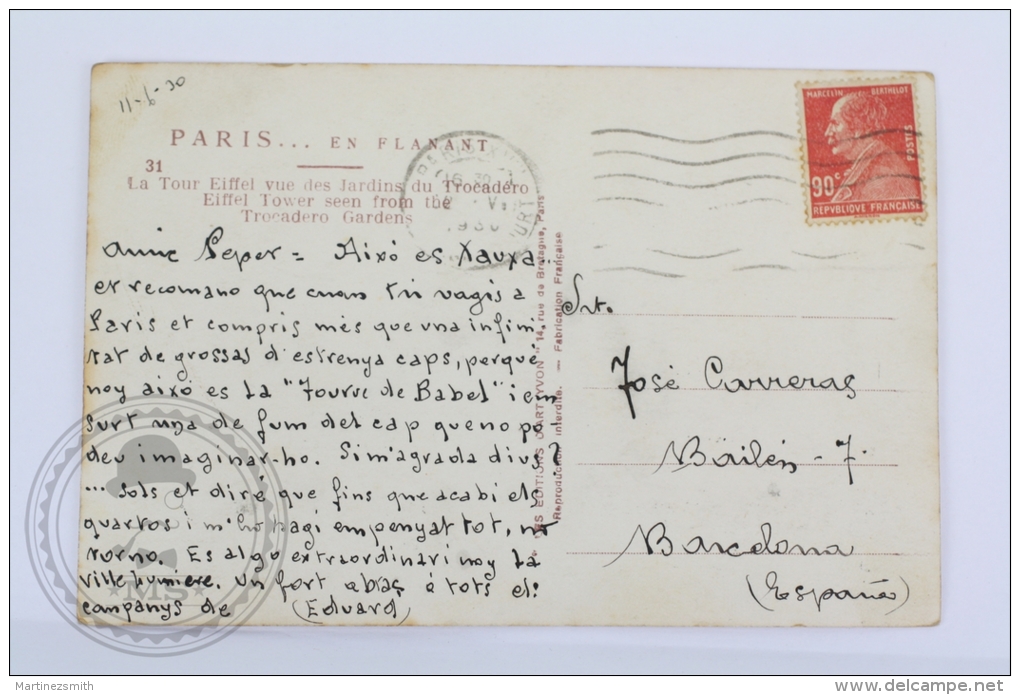 11-6-30
PARIS... EN FLANANT
31
La Tour Eiffel vue des Jardins du Trocadéro
Eiffel Tower seen from the
Trocadero Gardens
Amic Peper = Aixó es Xauxa...
et recomano que cuan tu vagis a
Paris et compris mes que una infini
tat de grossas d'estrenya caps, perqué
noy aixó es La "Tourre de Babel" i em
surt una de fum del cap que no po
deu imaginar-ho. Si m'agrada dius?
... sols et diré que fins que acabi els
quartos i m'ho hagi empenyat tot, no
torno. Es algo extraordinari noy La
Ville Lumiere. Un fort abraç á tots els
companys de (Eduard)
LES EDITIONS D'ART YVON " 14, rue de Bretagne, Paris
Reproduction interdite. — Fabrication Française
MARCELIN BERTHELOT
POSTES
90c
REPVBLIQUE FRANCAISE
PARIS XV
16 30
1930
Srt.
José Carreras
Bailén - 7.
Barcelona
(España)
MS
Martinezsmith
www.delcampe.net